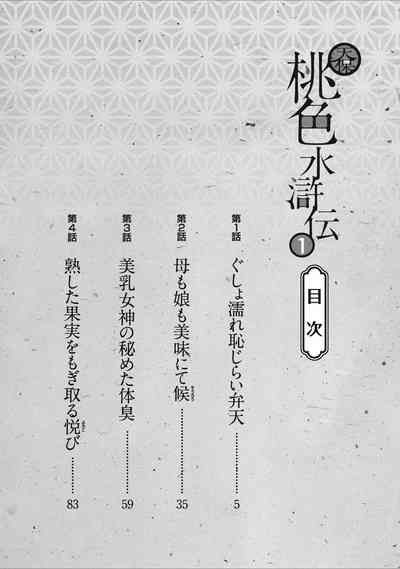 天保
桃色水滸伝
1
目次
第1話
ぐしょ濡れ恥じらい弁天…………5
第2話
母も娘も美味にて候…………35
第3話
美乳女神の秘めた体臭…………59
第4話
熟した果実をもぎ取る悦び…………83